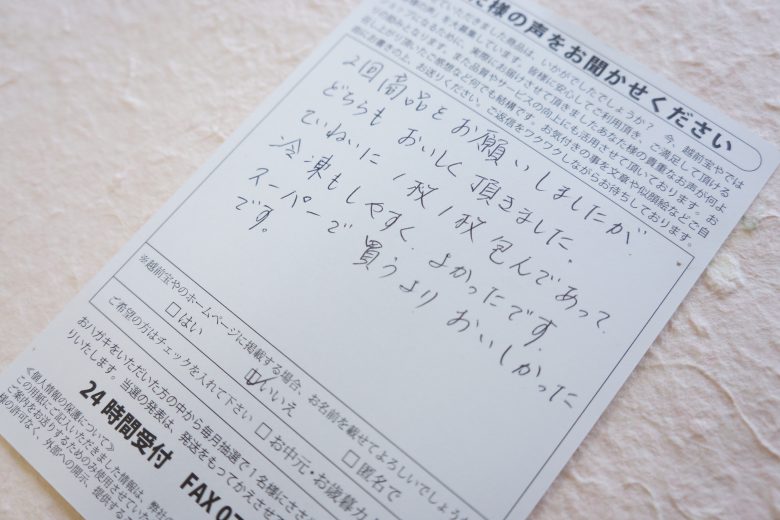 た様の声をお聞かせください
ていただきました商品は、いかがでしたでしょうか？ 今、越前宝やでは
様の声」を募集しています。皆様に安心してご利用頂き、ご満足して頂ける
ショップになるために、実際にお届けさせて頂きましたあなた様の貴重なお声が何よ
りの励みとなります。また品質やサービスの向上にも活用させて頂いております。お
召し上がり頂いたご感想など何でも結構です。お気付きの事を文章や似顔絵などご自
由にお書きの上、お送りください。ご返信をワクワクしながらお待ちしております。
2回商品をお願いしましたが
どちらも おいしく頂きました。
ていねいに1枚1枚包んであって
冷凍もしやすく よかったです。
スーパーで 買うより おいしかった
です。
※越前宝やのホームページに掲載する場合、お名前を載せてよろしいでしょうか
□はい □いいえ □匿名で
ご希望の方はチェックを入れて下さい □お中元・お歳暮カ
おハガキをいただいた方の中から毎月抽選で1名様にささ
りいたします。当選の発表は、発送をもってかえさせて
24時間受付 FAX 07
≪個人情報の保護について≫
この用紙にご記入いただきました情報は、弊社の
ご案内をお送りするためのみ使用させていた
様の許可なく、外部への開示、提供するこ